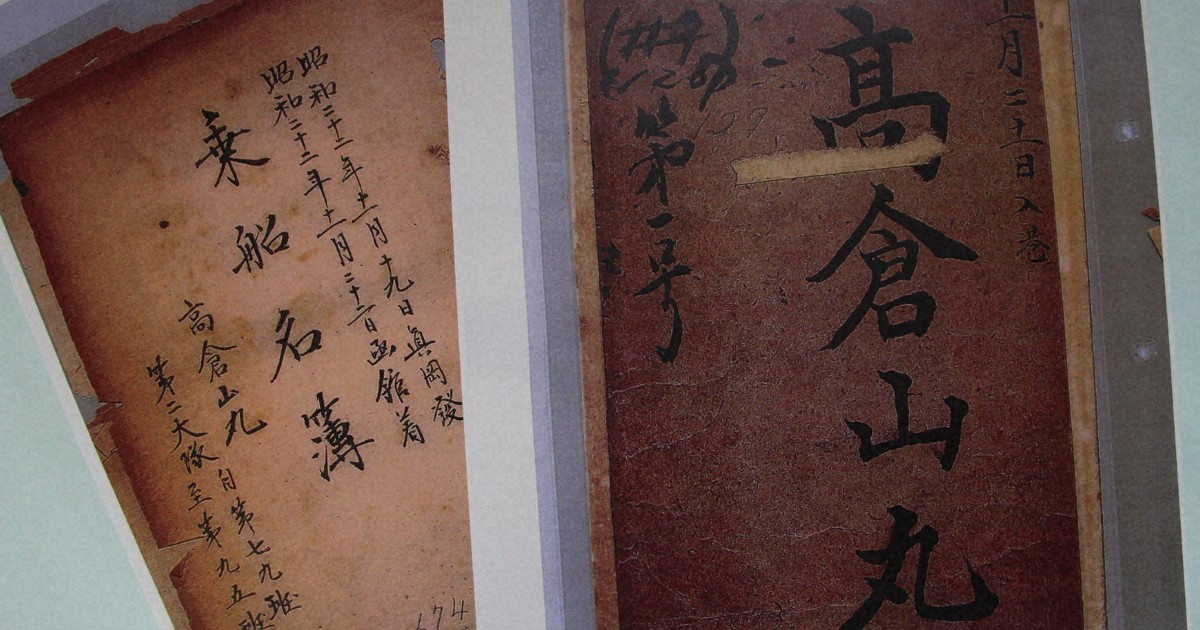 昭和二十二年十一月十九日眞岡發
昭和二十二年十一月二十一日函館着
乗船名簿
高倉山丸自第七九班
第二大隊至第九五班
674
十一月二十一日入港
高倉山丸
第一号